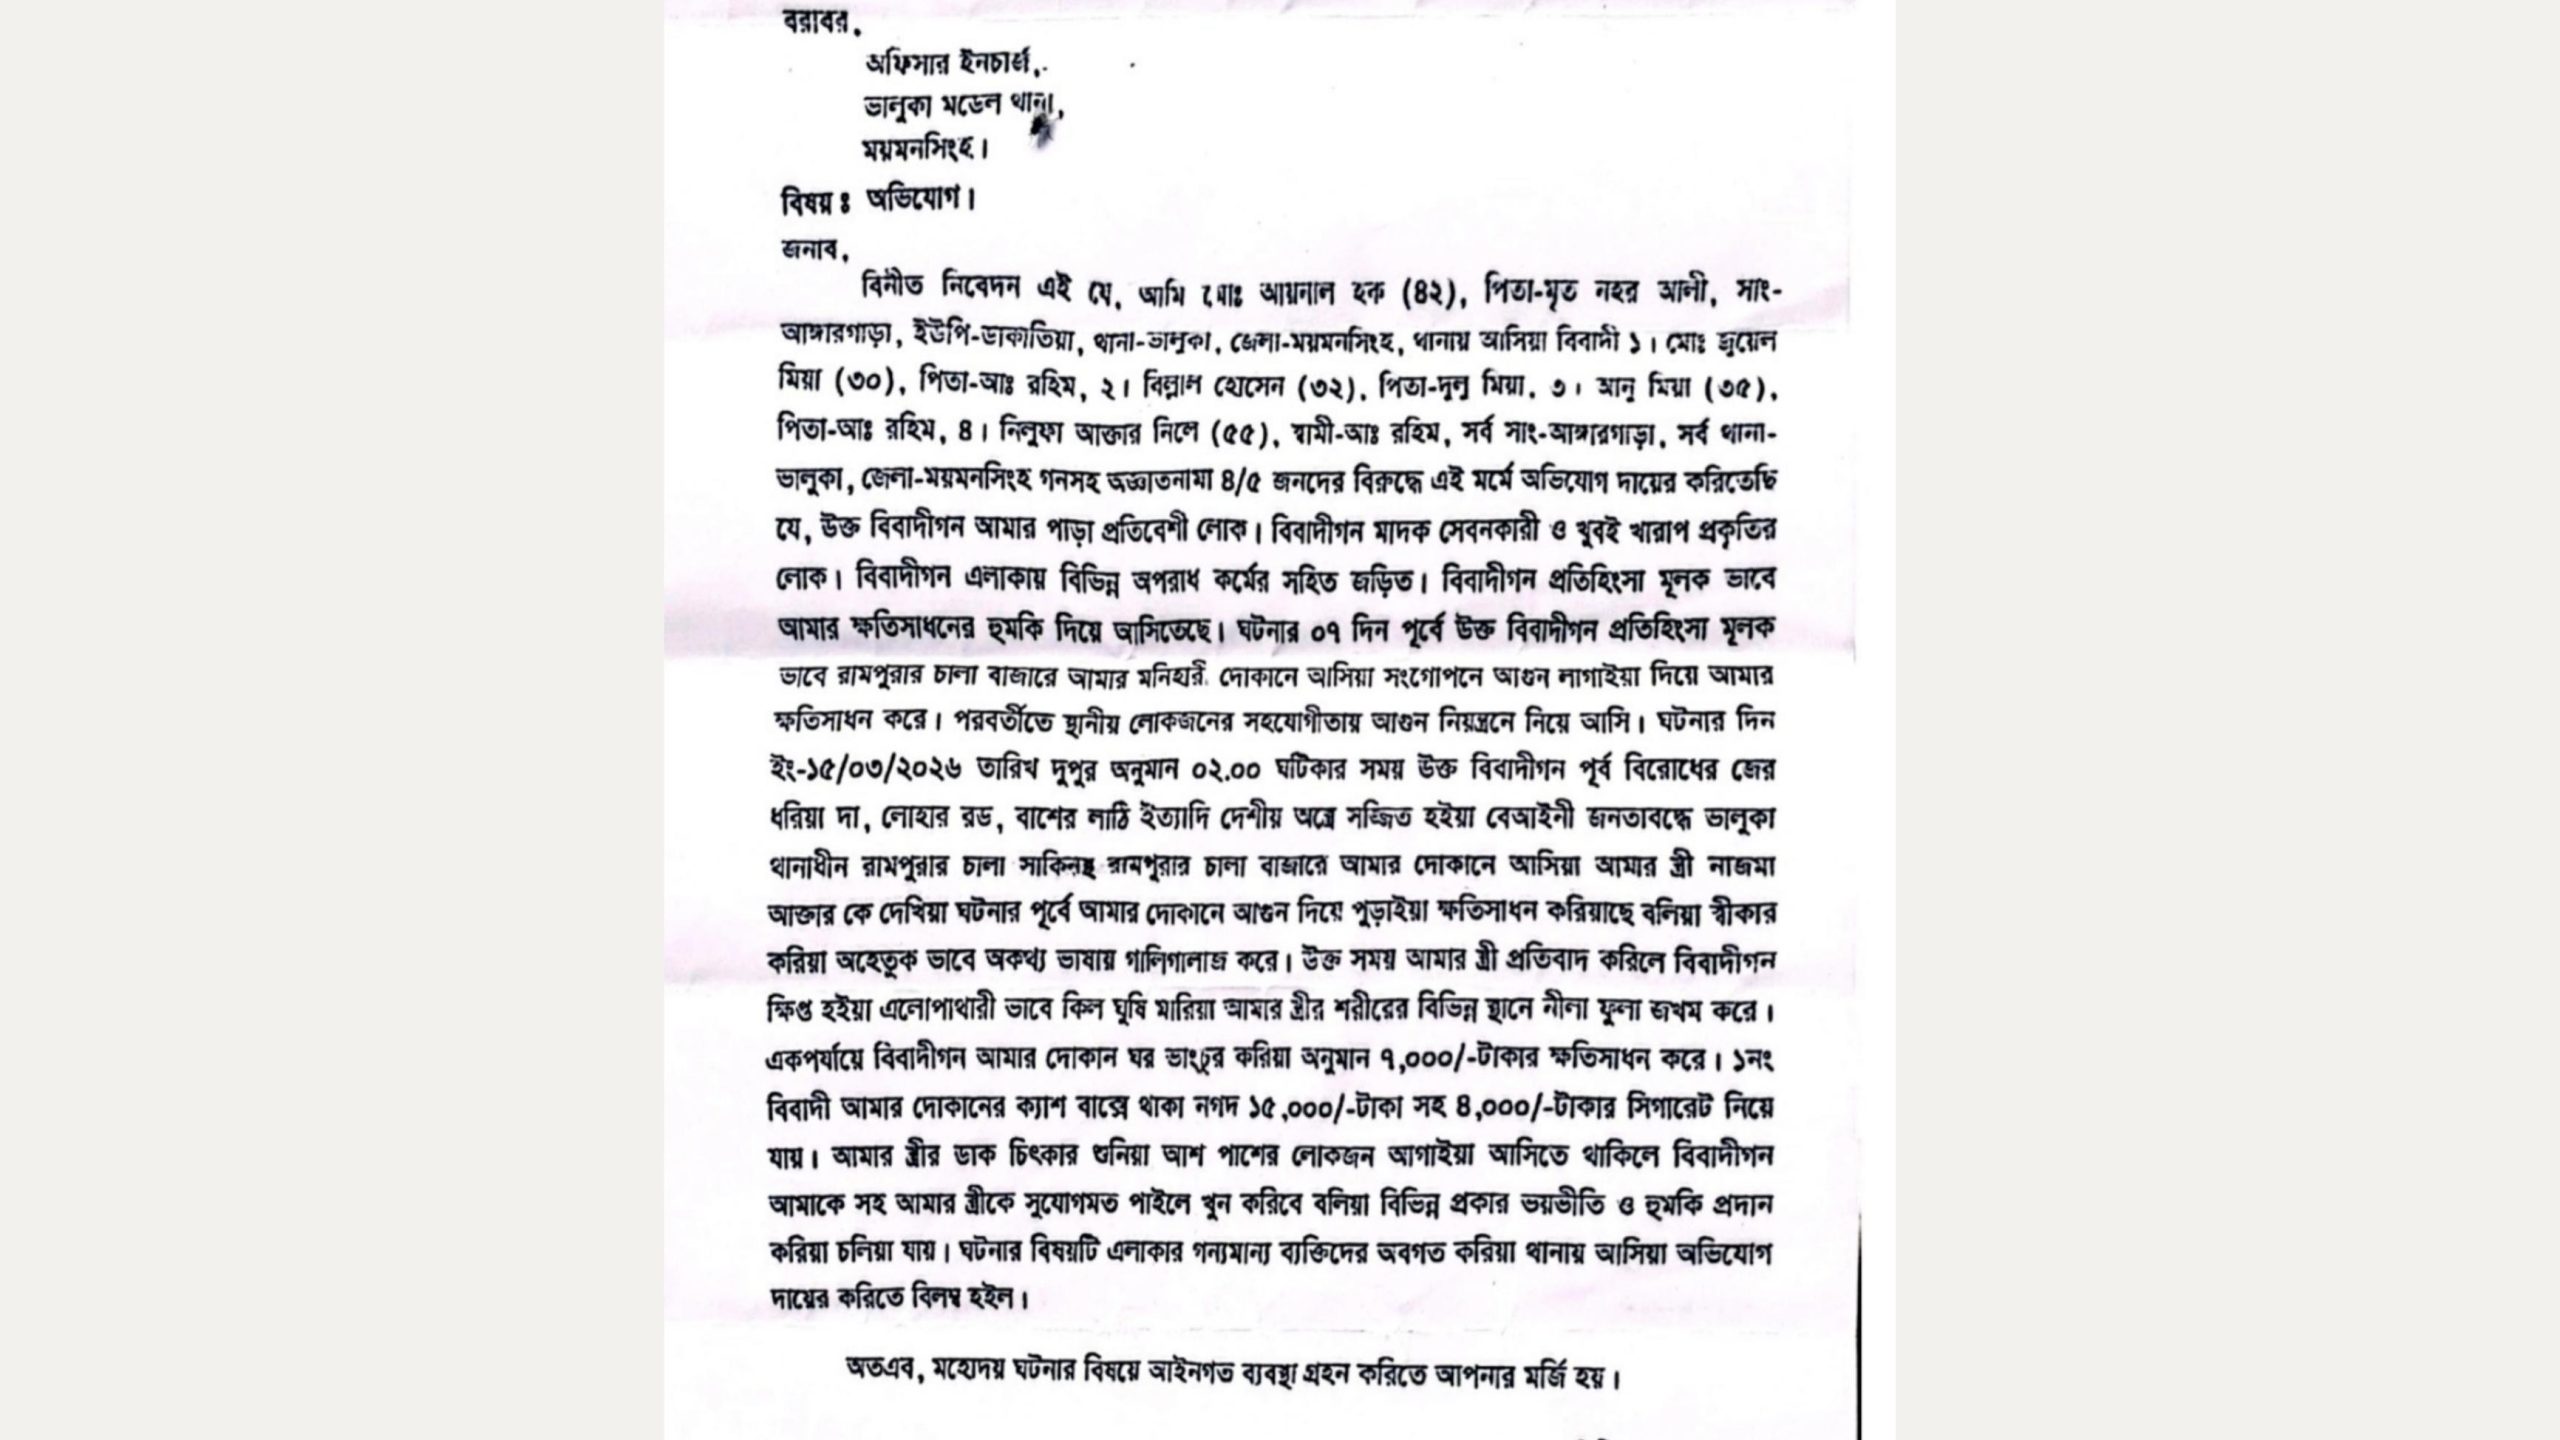 বরাবর,
অফিসার ইনচার্জ,
ভালুকা মডেল থানা,
ময়মনসিংহ।
বিষয়ঃ অভিযোগ।
জনাব,
বিনীত নিবেদন এই যে, আমি মোঃ আয়নাল হক (৪২), পিতা-মৃত নহর আলী, সাং-
আঙ্গারগাড়া, ইউপি-ডাকাতিয়া, থানা-ভালুকা, জেলা-ময়মনসিংহ, থানায় আসিয়া বিবাদী ১। মোঃ জুয়েল
মিয়া (৩০), পিতা-আঃ রহিম, ২। বিল্লাল হোসেন (৩২), পিতা-দুলু মিয়া, ৩। আনু মিয়া (৩৫),
পিতা-আঃ রহিম, ৪। নিলুফা আক্তার নিলে (৫৫), স্বামী-আঃ রহিম, সর্ব সাং-আঙ্গারগাড়া, সর্ব থানা-
ভালুকা, জেলা-ময়মনসিংহ গনসহ অজ্ঞাতনামা ৪/৫ জনদের বিরুদ্ধে এই মর্মে অভিযোগ দায়ের করিতেছি
যে, উক্ত বিবাদীগন আমার পাড়া প্রতিবেশী লোক। বিবাদীগন মাদক সেবনকারী ও খুবই খারাপ প্রকৃতির
লোক। বিবাদীগন এলাকায় বিভিন্ন অপরাধ কর্মের সহিত জড়িত। বিবাদীগন প্রতিহিংসা মূলক ভাবে
আমার ক্ষতিসাধনের হুমকি দিয়ে আসিতেছে। ঘটনার ০৭ দিন পূর্বে উক্ত বিবাদীগন প্রতিহিংসা মূলক
ভাবে রামপুরার চালা বাজারে আমার মনিহারী দোকানে আসিয়া সংগোপনে আগুন লাগাইয়া দিয়ে আমার
ক্ষতিসাধন করে। পরবর্তীতে স্থানীয় লোকজনের সহযোগীতায় আগুন নিয়ন্ত্রনে নিয়ে আসি। ঘটনার দিন
ইং-১৫/০৩/২০২৬ তারিখ দুপুর অনুমান ০২.০০ ঘটিকার সময় উক্ত বিবাদীগন পূর্ব বিরোধের জের
ধরিয়া দা, লোহার রড, বাশের লাঠি ইত্যাদি দেশীয় অস্ত্রে সজ্জিত হইয়া বেআইনী জনতাবদ্ধে ভালুকা
থানাধীন রামপুরার চালা সাকিনস্থ রামপুরার চালা বাজারে আমার দোকানে আসিয়া আমার স্ত্রী নাজমা
আক্তার কে দেখিয়া ঘটনার পূর্বে আমার দোকানে আগুন দিয়ে পুড়াইয়া ক্ষতিসাধন করিয়াছে বলিয়া স্বীকার
করিয়া অহেতুক ভাবে অকথ্য ভাষায় গালিগালাজ করে। উক্ত সময় আমার স্ত্রী প্রতিবাদ করিলে বিবাদীগন
ক্ষিপ্ত হইয়া এলোপাথারী ভাবে কিল ঘুষি মারিয়া আমার স্ত্রীর শরীরের বিভিন্ন স্থানে নীলা ফুলা জখম করে।
একপর্যায়ে বিবাদীগন আমার দোকান ঘর ভাংচুর করিয়া অনুমান ৭,০০০/-টাকার ক্ষতিসাধন করে। ১নং
বিবাদী আমার দোকানের ক্যাশ বাক্সে থাকা নগদ ১৫,০০০/-টাকা সহ ৪,০০০/-টাকার সিগারেট নিয়ে
যায়। আমার স্ত্রীর ডাক চিৎকার শুনিয়া আশ পাশের লোকজন আগাইয়া আসিতে থাকিলে বিবাদীগন
আমাকে সহ আমার স্ত্রীকে সুযোগমত পাইলে খুন করিবে বলিয়া বিভিন্ন প্রকার ভয়ভীতি ও হুমকি প্রদান
করিয়া চলিয়া যায়। ঘটনার বিষয়টি এলাকার গন্যমান্য ব্যক্তিদের অবগত করিয়া থানায় আসিয়া অভিযোগ
দায়ের করিতে বিলম্ব হইল।
অতএব, মহোদয় ঘটনার বিষয়ে আইনগত ব্যবস্থা গ্রহন করিতে আপনার মর্জি হয়।